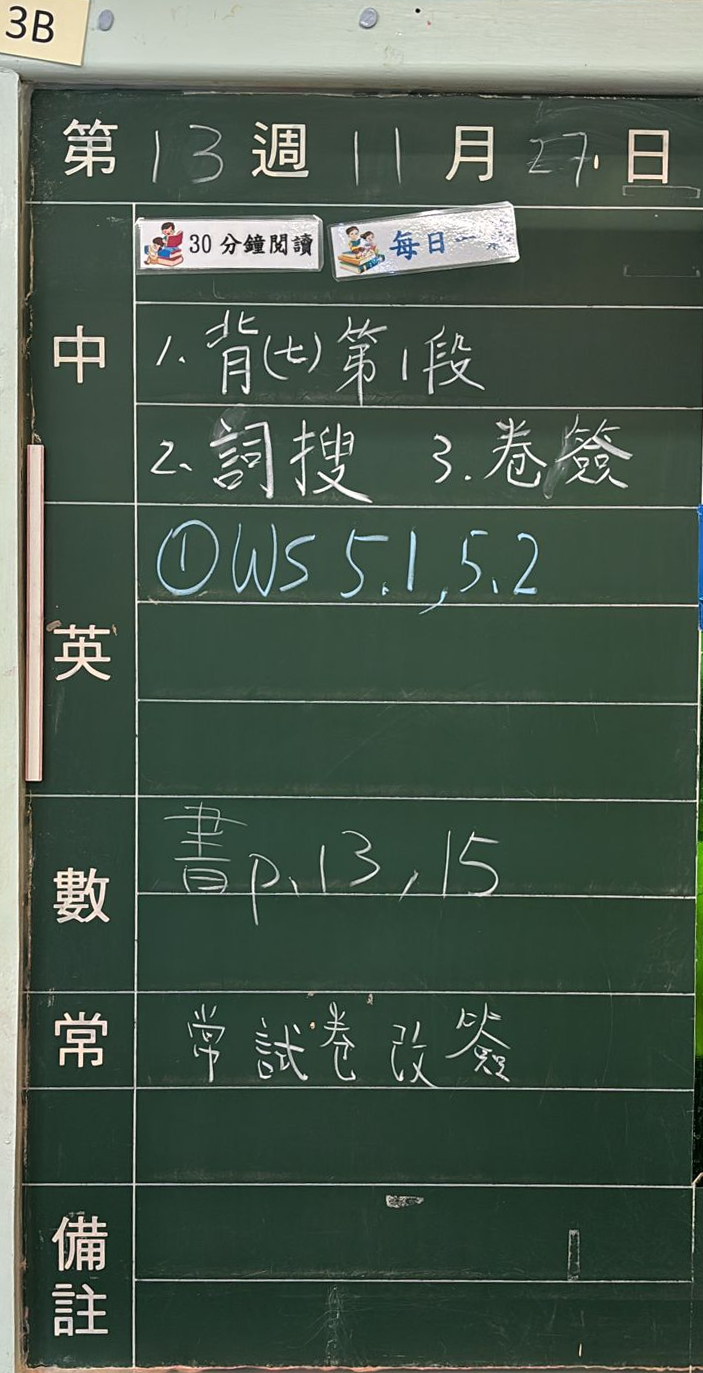 3B
第 13 週 11 月 27 日
30 分鐘閱讀 每日一
中
1. 背(七)第1段
2. 詞搜 3. 卷簽
英
① WS 5.1, 5.2
數
書p.13, 15
常
常試卷改簽
備註